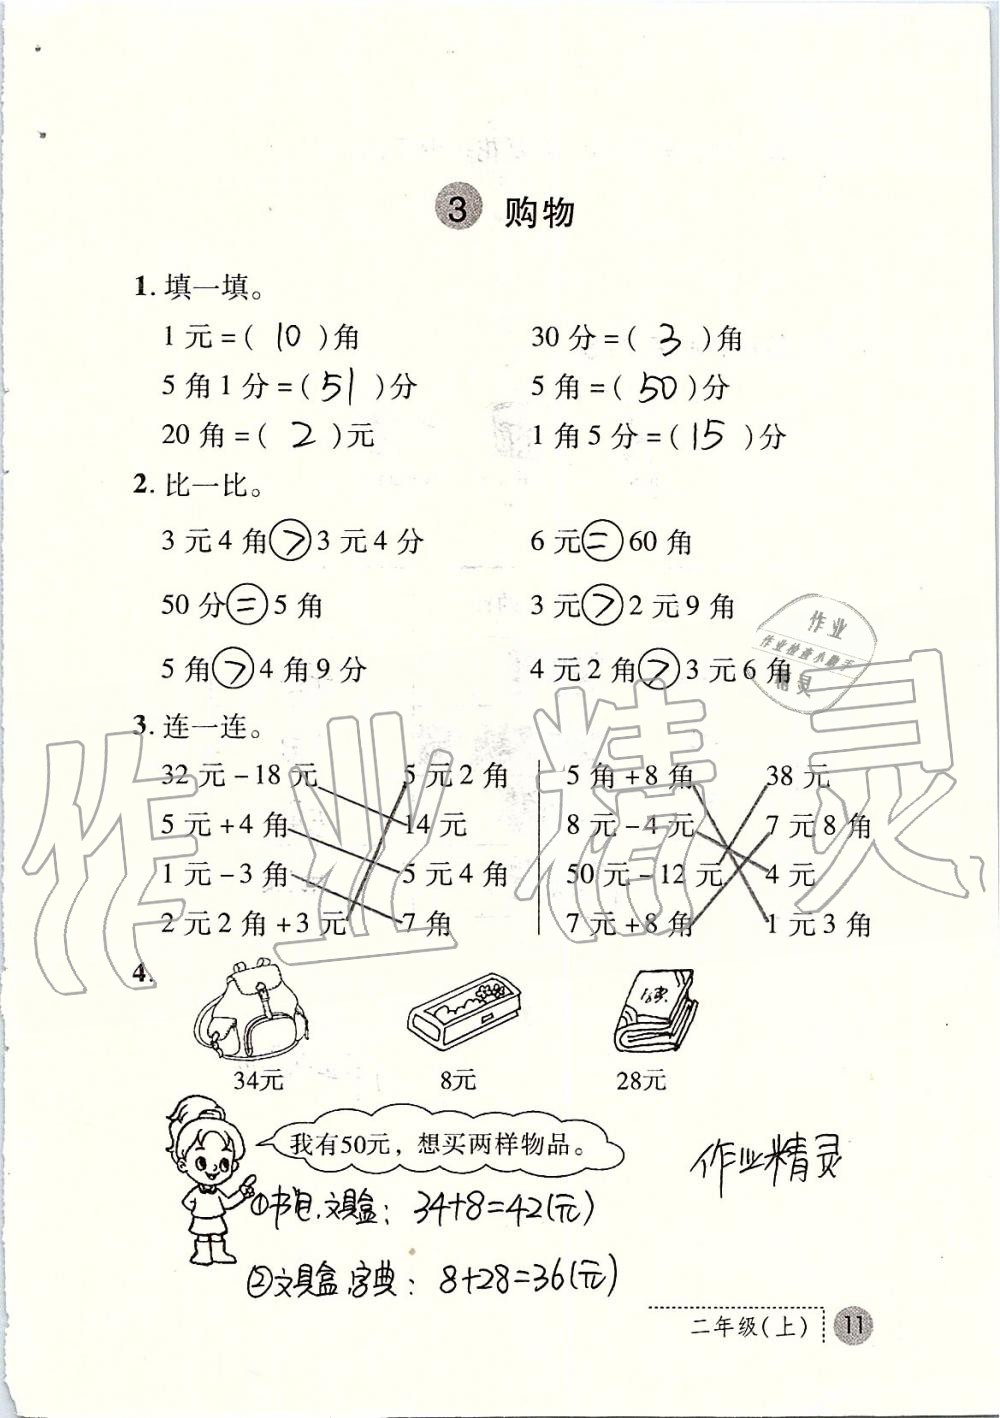 3 购物
1. 填一填。
1元=( 10 )角 30分=( 3 )角
5角1分=( 51 )分 5角=( 50 )分
20角=( 2 )元 1角5分=( 15 )分
2. 比一比。
3元4角>3元4分 6元=60角
50分=5角 3元>2元9角
5角>4角9分 4元2角>3元6角
作业
作业检查小助手
精灵
3. 连一连。
32元-18元 5元2角 5角+8角 38元
5元+4角 14元 8元-4元 7元8角
1元-3角 5元4角 50元-12元 4元
2元2角+3元 7角 7元+8角 1元3角
作业精灵
4.
字典
34元 8元 28元
我有50元，想买两样物品。
作业精灵
①书包、文具盒：34+8=42(元)
②文具盒、字典：8+28=36(元)
二年级(上) 11